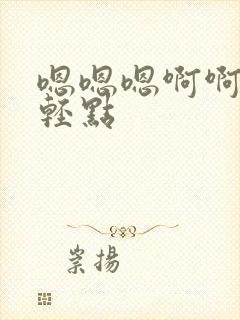 嗯嗯嗯啊啊
輕點
崇揚